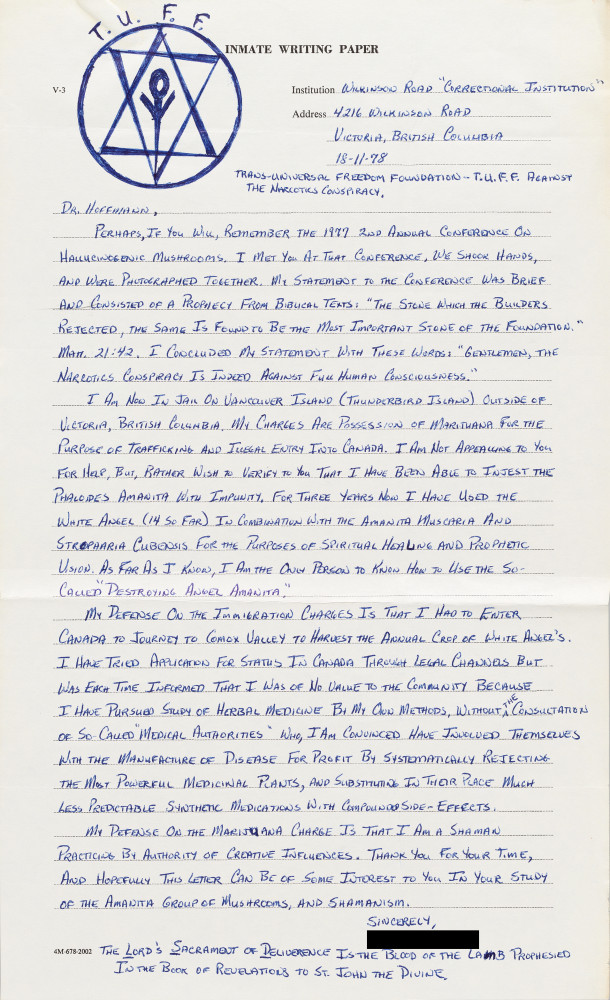 T. U. F. F.
INMATE WRITING PAPER
V-3
Institution Wilkinson Road "Correctional Institution"
Address 4216 Wilkinson Road
Victoria, British Columbia
18-11-78
Trans-Universal Freedom Foundation - T.U.F.F. Against
The Narcotics Conspiracy.
Dr. Hoffmann,
Perhaps, If You Will, Remember The 1977 2nd Annual Conference On
Hallucinogenic Mushrooms. I Met You At That Conference, We Shook Hands,
And Were Photographed Together. My Statement to the Conference Was Brief
And Consisted of A Prophecy From Biblical Texts: "The Stone Which the Builders
Rejected, the Same Is Found to Be the Most Important Stone of the Foundation."
Matt. 21:42. I Concluded My Statement With These Words: "Gentlemen, The
Narcotics Conspiracy Is Indeed Against Full Human Consciousness."
I Am Now In Jail On Vancouver Island (Thunderbird Island) Outside of
Victoria, British Columbia. My Charges Are Possession of Marijuana For the
Purpose of Trafficking And Illegal Entry Into Canada. I Am Not Appealing to You
For Help, But, Rather Wish to Verify to You That I Have Been Able to Injest the
Phaloides Amanita With Impunity. For Three Years Now I Have Used The
White Angel (14 So Far) In Combination With the Amanita Muscaria And
Stropaaria Cubensis For the Purposes of Spiritual Healing And Prophetic
Vision. As Far As I Know, I Am the Only Person to Know How to Use the So-
Called "Destroying Angel Amanita."
My Defense On the Immigration Charges Is That I Had to Enter
Canada to Journey to Comox Valley to Harvest the Annual Crop of White Angel's.
I Have Tried Application For Status In Canada Through Legal Channels But
Was Each Time Informed That I Was of No Value to the Community Because
I Have Pursued Study of Herbal Medicine By My Own Methods, Without the Consultation
of So-Called "Medical Authorities" Who, I Am Convinced Have Involved Themselves
With the Manufacture of Disease For Profit By Systematically Rejecting
the Most Powerful Medicinal Plants, And Substituting In Their Place Much
Less Predictable Synthetic Medications With Compounded Side-Effects.
My Defense On the Marijuana Charge Is That I Am a Shaman
Practicing By Authority of Creative Influences. Thank You For Your Time,
And Hopefully This Letter Can Be of Some Interest to You In Your Study
of the Amanita Group of Mushrooms, And Shamanism.
Sincerely,
4M-678-2002 The Lord's Sacrament of Deliverence Is the Blood of the Lamb Prophesied
In the Book of Revelations to St. John the Divine.